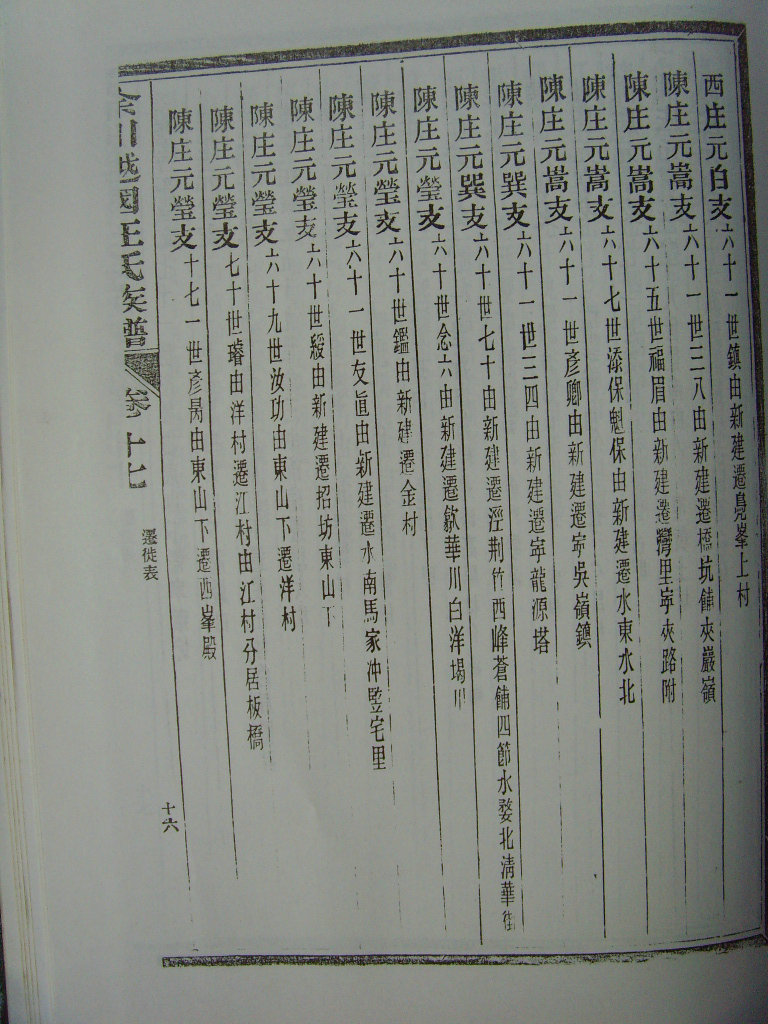 西庄元白支六十一世鎮由新建遷鳧峯上村
陳庄元嵩支六十一世三八由新建遷橋坑舖夾巖嶺
陳庄元嵩支六十五世福眉由新建遷灣里寜夾路附
陳庄元嵩支六十七世添保魁保由新建遷水東水北
陳庄元嵩支六十一世彥卿由新建遷寜吳嶺鎮
陳庄元巽支六十一世三四由新建遷寜龍源塔
陳庄元巽支六十世七十由新建遷涇荆竹西峰蒼舖四節水婺北清華街
陳庄元瑩支六十世念六由新建遷歙華川白洋堨川
陳庄元瑩支六十世鑑由新建遷金村
陳庄元瑩支六十一世友眞由新建遷水南馬家冲監宅里
陳庄元瑩支六十世綬由新建遷招坊東山下
陳庄元瑩支六十九世汝功由東山下遷洋村
陳庄元瑩支七十世璿由洋村遷江村由江村分居板橋
陳庄元瑩支十七一世彥昺由東山下遷西峯殿
川越國汪氏族譜 卷十七
遷徙表
十六